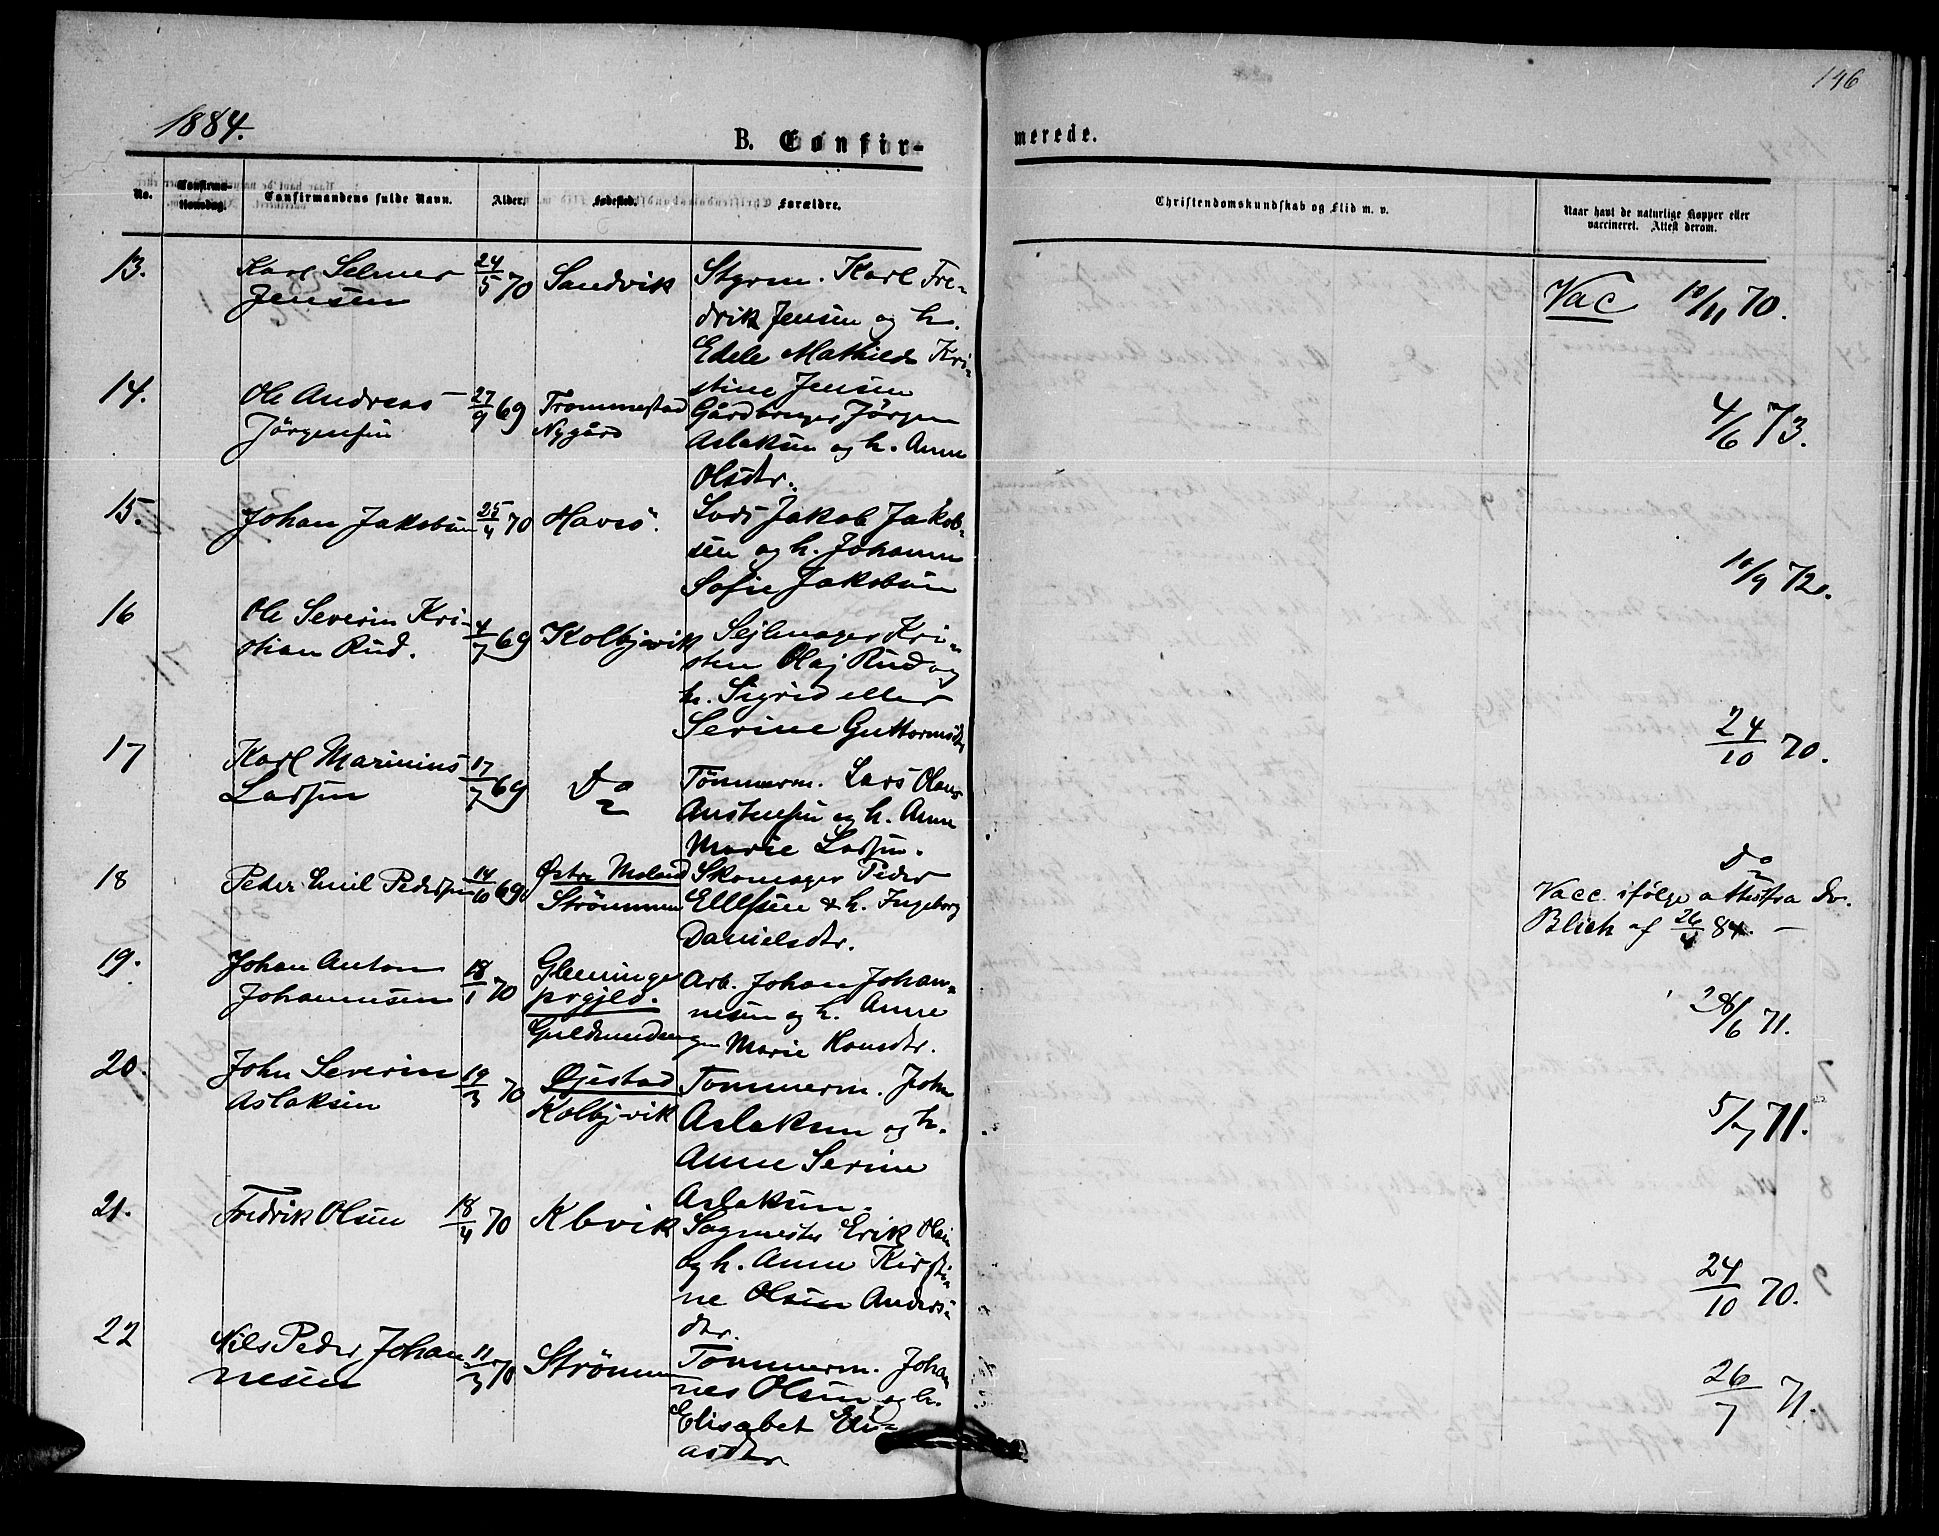 146
1884.
B. Confir-
merede.
No.
Confirma-
tionsdag.
Confirmandens fulde Navn.
Alder.
Fødested.
Forældre.
Christendomskundskab og Flid m. v.
Naar havt de naturlige Kopper eller
vaccineret. Attest derom.
13.
Karl Selmer
Jensen
24/5 70
Sandvik
Styrm. Karl Fre-
drik Jensen og h.
Edele Mathilde Kri-
stine Jensen
Vac 10/11 70.
14.
Ole Andreas
Jørgensen
27/9 69
Trommestad
Nygård
Gårdbruger Jørgen
Aslaksen og h. Anne
Olsdtr.
4/6 73.
15.
Johan Jakobsen
25/4 70
Havsö.
Lods Jakob Jakob-
sen og h. Johanne
Sofie Jakobsen
10/9 72.
16
Ole Severin Kri-
stian Rud.
4/7 69
Kolbjvik
Sejlmager Kri-
sten Olaj Rud og
h. Sigrid eller
Serine Guttormsdtr
24/10 70.
17
Karl Marinius
Larsen
17/7 69
Do
Tömmerm. Lars Olaus
Anstensen og h. Anne
Marie Larsen.
Do
18
Peder Emil Pedersen
14/10 69
Østre Moland
Strömmen
Skomager Peder
Ellefsen & h. Ingeborg
Danielsdtr.
Vacc. ifølge attest fra Dr.
Blich af 26/4 84. —
19.
Johan Anton
Johannesen
18/1 70
Glemminge
prgjld.
Guldmundengen
Arb. Johan Johan-
nesen og h. Anne
Marie Hansdtr.
28/6 71.
20.
John Severin
Aslaksen
19/3 70
Øjestad
Kolbjvik
Tömmerm. John
Aslaksen og h.
Anne Serine
Aslaksen.
5/7 71.
21.
Fredrik Olsen
18/4 70
Kbvik
Sagmester Erik Olsen
og h. Anne Kirsti-
ne Olsen Anders-
dtr.
24/10 70.
22
Nils Peder Johan
nesen
11/3 70
Strömmen
Tömmerm. Johan
nes Olsen og h.
Elisabet Eli-
asdtr
26/7 71.